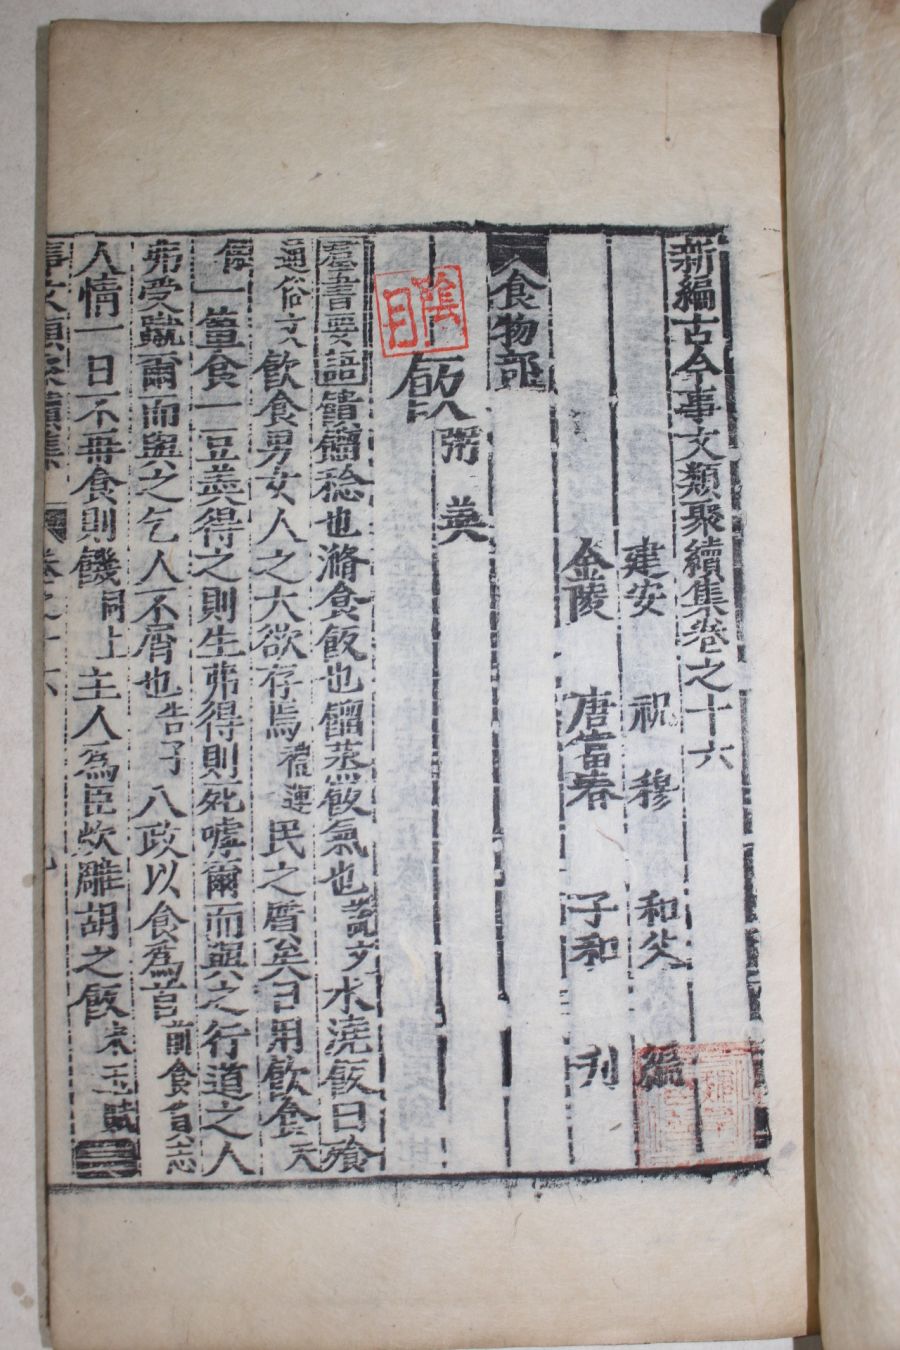 新編古今事文類聚續集卷之十六
建安 祝穆 和父 編
金陵 唐富春 子和 刊
食物部
飯 粥 羹
羣書要語 饙餾稔也滫食飯也餾蒸飯氣也說文水澆飯曰飱
通俗文飲食男女人之大欲存焉禮運民之質矣日用飲食天
保一簞食一豆羹得之則生弗得則死嘑爾而與之行道之人
弗受蹴爾而與之乞人不屑也告子八政以食爲首前食貨志
人情一日不再食則饑同上主人爲臣炊雕胡之飯宋玉賦
事文類聚續集 卷之十六